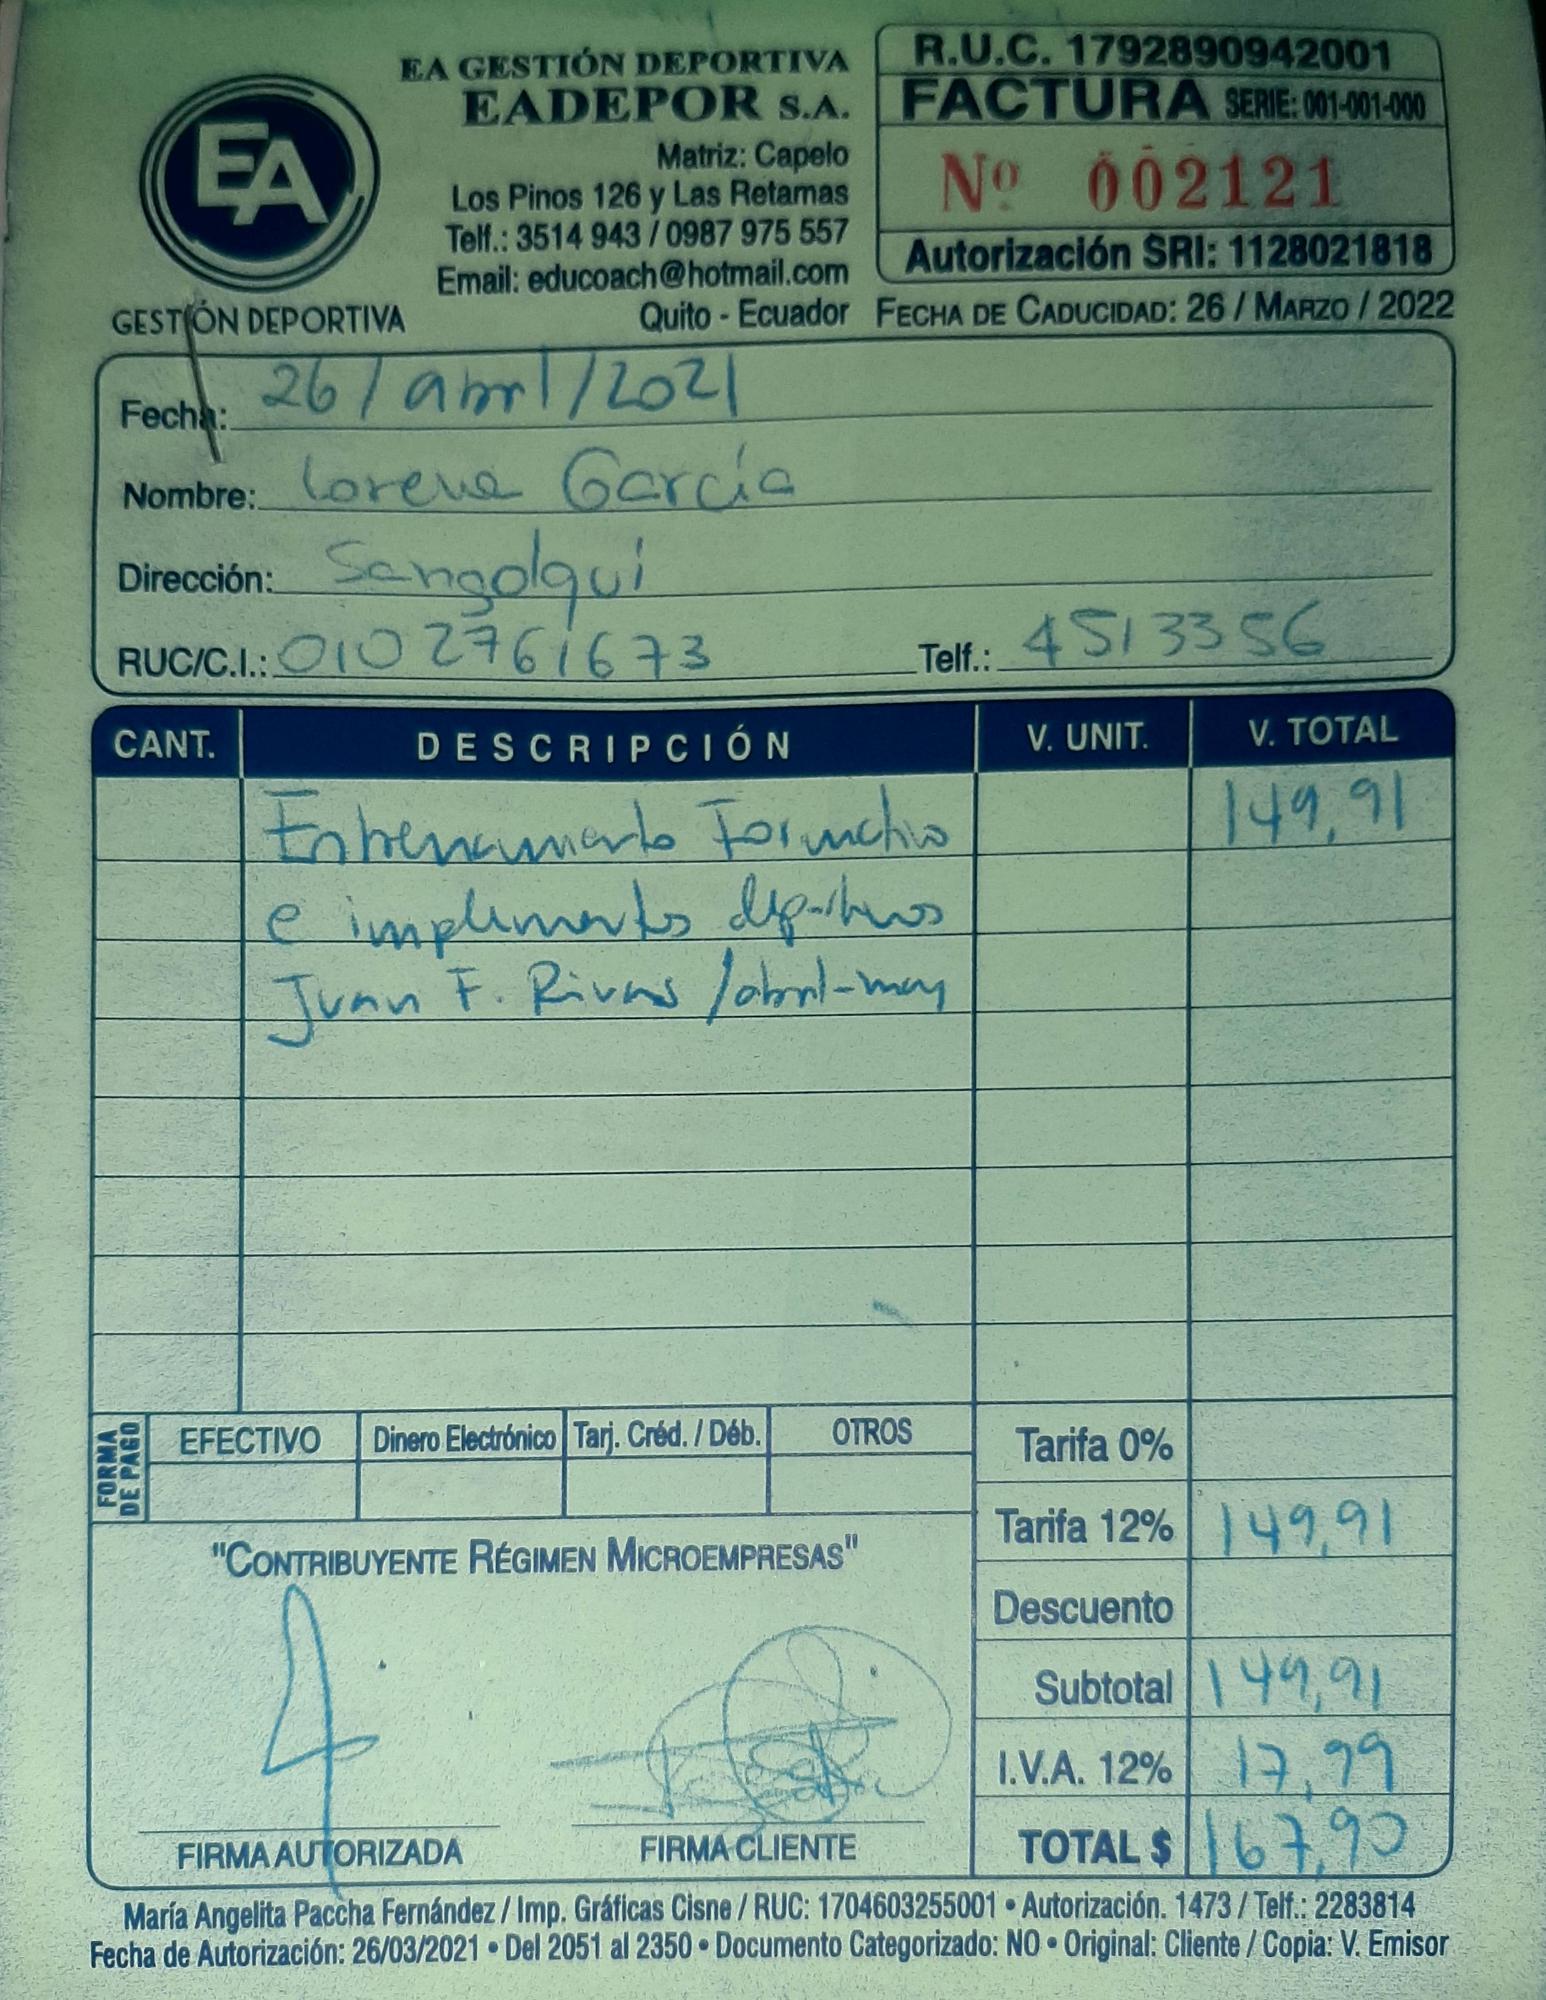 EA
GESTIÓN DEPORTIVA
EA GESTIÓN DEPORTIVA
EADEPOR S.A.
Matriz: Capelo
Los Pinos 126 y Las Retamas
Telf.: 3514 943 / 0987 975 557
Email: educoach@hotmail.com
Quito - Ecuador
R.U.C. 1792890942001
FACTURA SERIE: 001-001-000
Nº 002121
Autorización SRI: 1128021818
FECHA DE CADUCIDAD: 26 / MARZO / 2022
Fecha: 26/abril/2021
Nombre: Lorena García
Dirección: Sangolqui
RUC/C.I.: 0102761673 Telf.: 4513356
CANT. DESCRIPCIÓN V. UNIT. V. TOTAL
Entrenamiento Formativo 149,91
e implementos deportivos
Juan F. Rivas /abril-may
FORMA DE PAGO
EFECTIVO Dinero Electrónico Tarj. Créd. / Déb. OTROS
Tarifa 0%
Tarifa 12% 149,91
Descuento
Subtotal 149,91
I.V.A. 12% 17,99
TOTAL $ 167,90
"CONTRIBUYENTE RÉGIMEN MICROEMPRESAS"
FIRMA AUTORIZADA FIRMA CLIENTE
María Angelita Paccha Fernández / Imp. Gráficas Cisne / RUC: 1704603255001 • Autorización. 1473 / Telf.: 2283814
Fecha de Autorización: 26/03/2021 • Del 2051 al 2350 • Documento Categorizado: NO • Original: Cliente / Copia: V. Emisor